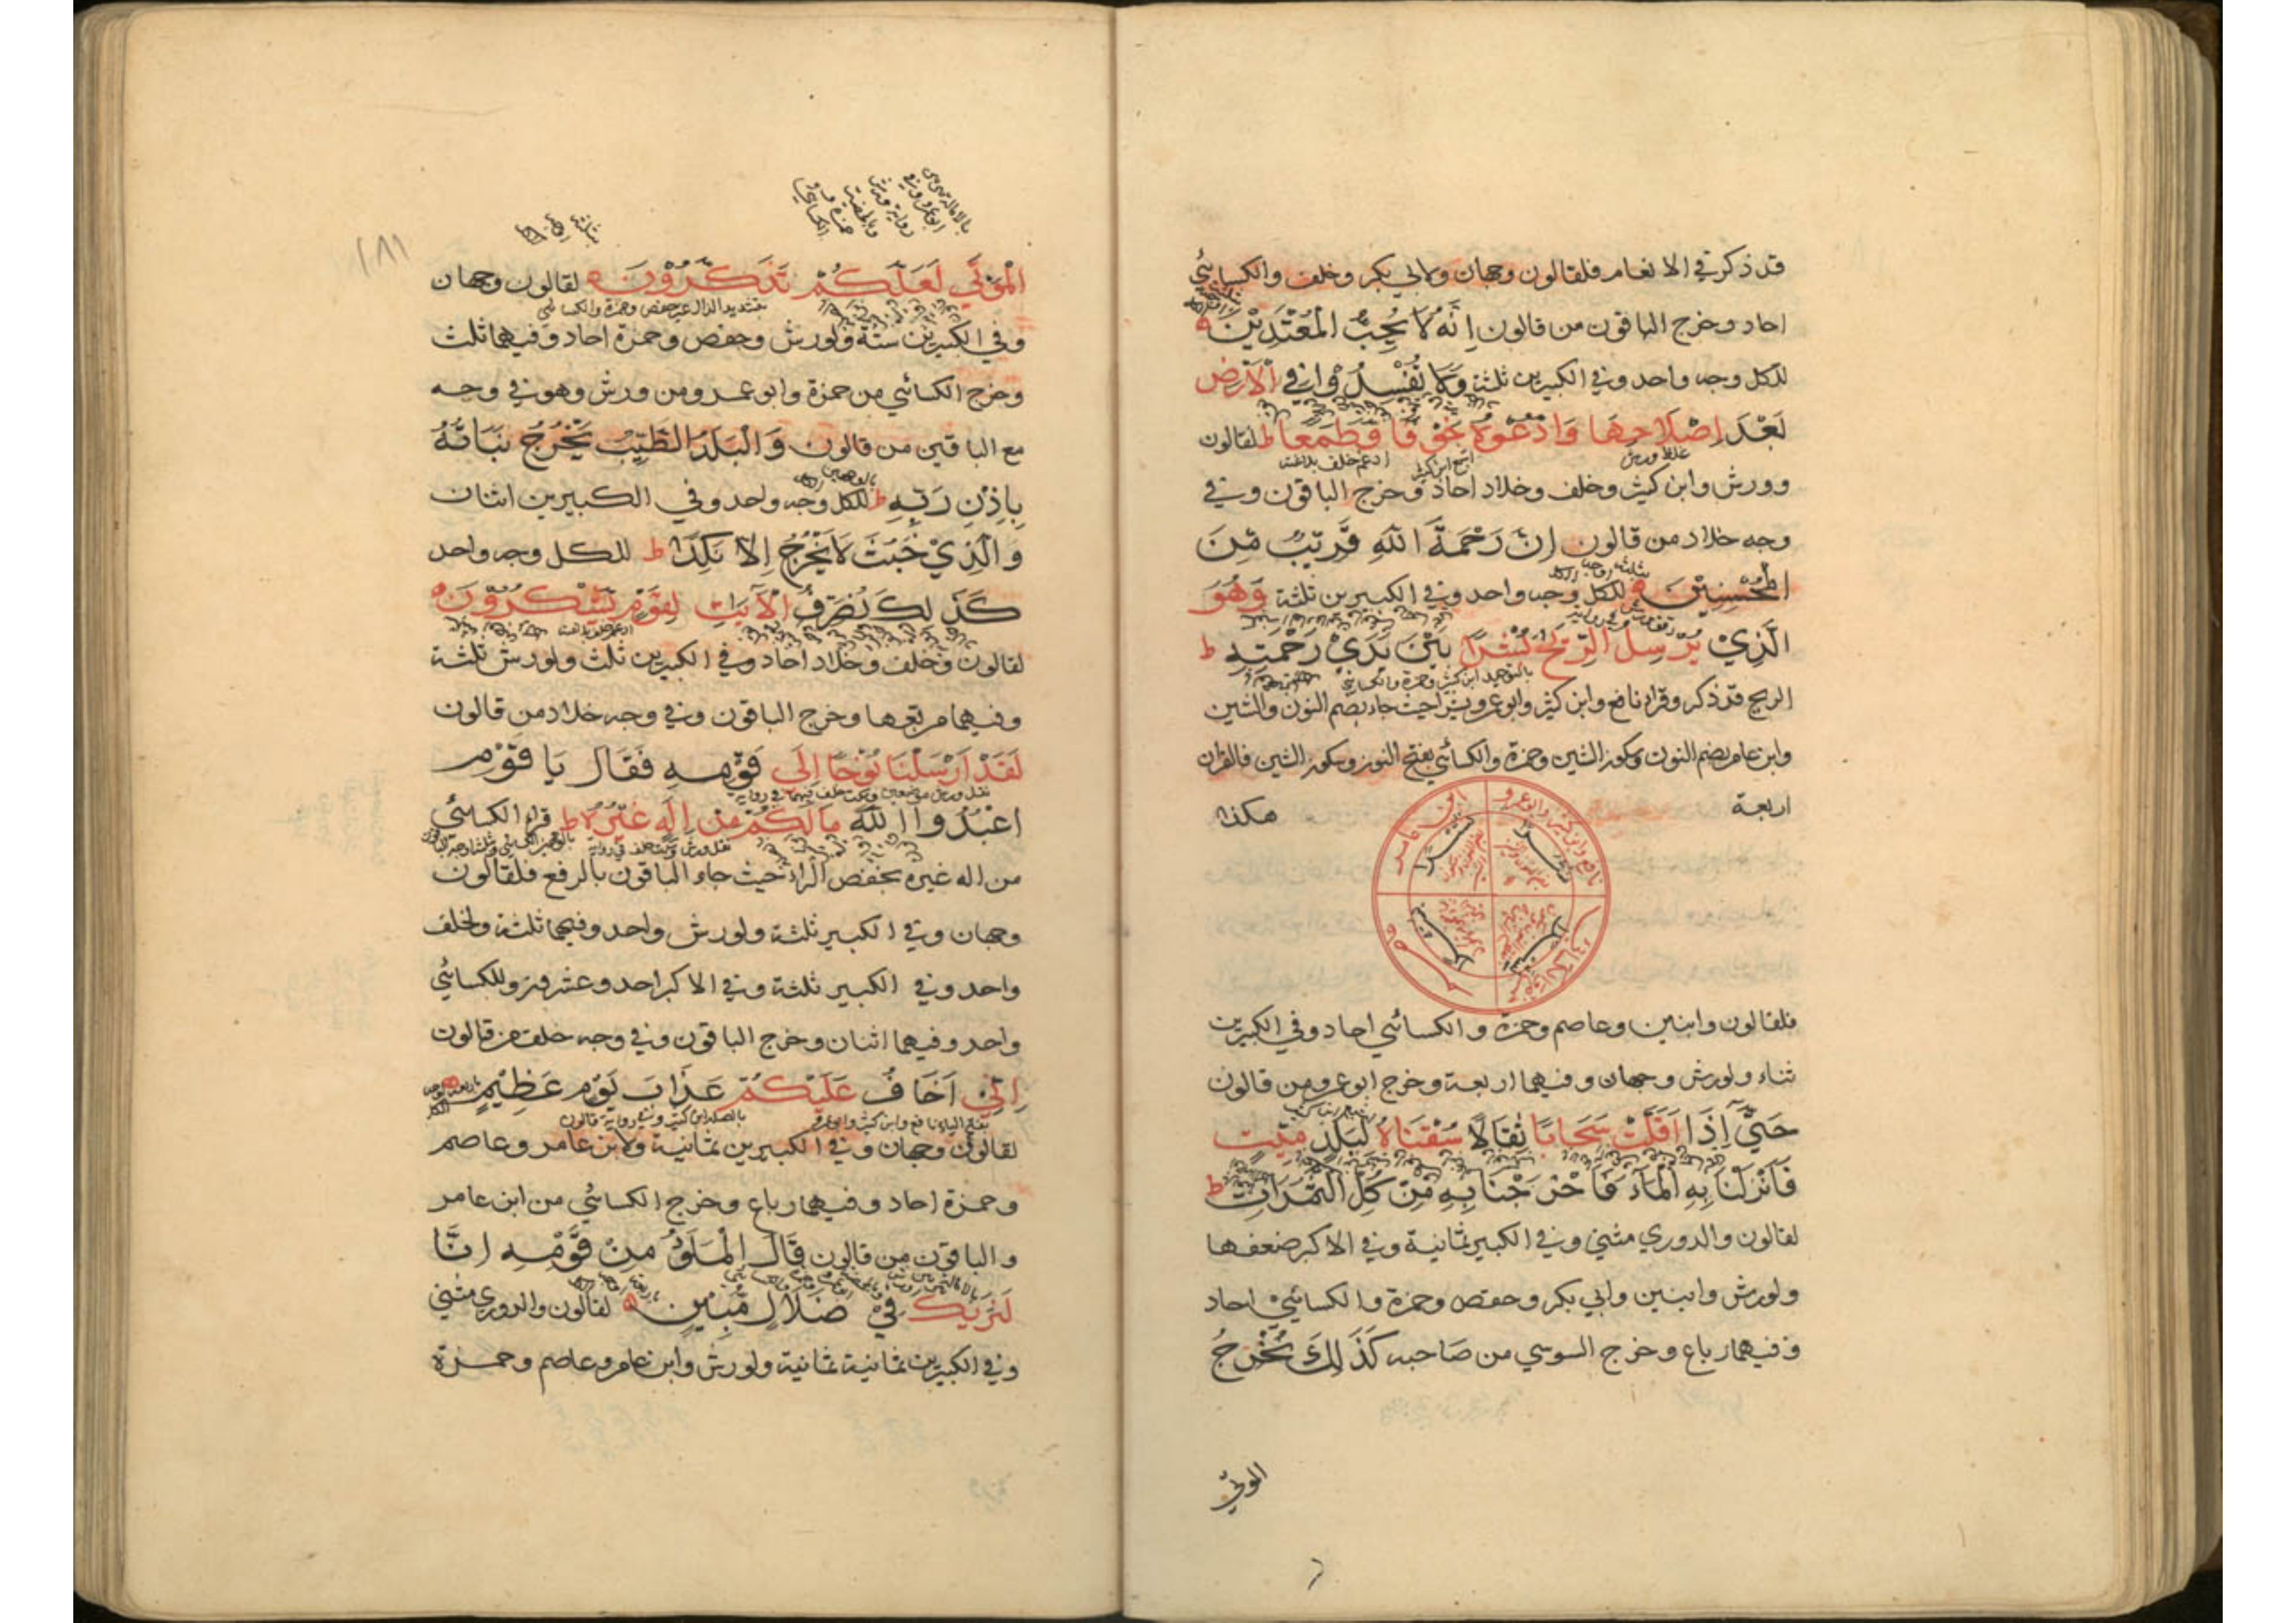 قد ذكر في الانعام فلقالون وجهان ولابي بكر وخلف والكسائي
احاد وخرج الباقون من قالون اِنَّهُ لَا يُحِبُّ الْمُعْتَدِيْنَ
للكل وجه واحد وفي الكبيرين ثلثة وَلَا تُفْسِدُوْا فِي الْاَرْضِ
بَعْدَ اِصْلَاحِهَا وَادْعُوْهُ خَوْفًا وَّطَمَعًا ط لقالون
غلظ ورش
اشبع ابن كثير
ادغم خلف بلاغنة
وورش وابن كثير وخلف وخلاد احاد وخرج الباقون وفي
وجه خلاد من قالون اِنَّ رَحْمَةَ اللّٰهِ قَرِيْبٌ مِّنَ
الْمُحْسِنِيْنَ للكل وجه واحد وفي الكبيرين ثلثة وَهُوَ
الَّذِيْ يُرْسِلُ الرِّيٰحَ نُشْرًا بَيْنَ يَدَيْ رَحْمَتِهٖ ط
بالتوحيد ابن كثير وحمزة والكسائي
الريح قد ذكر وقرا نافع وابن كثير وابو عمرو نشرا حيث جاء بضم النون والشين
وابن عامر بضم النون وسكون الشين وحمزة والكسائي بفتح النون وسكون الشين فالقران
اربعة هكذا
نافع وابن كثير وابو عمرو
ابن عامر
نشرا
نشرا
عاصم
بشرا
نشرا
فلقالون وابنين وعاصم وحمزة والكسائي احاد وفي الكبيرين
ثناء ولورش وجهان وفيهما اربعة وخرج ابو عمرو من قالون
حَتّٰى اِذَا اَقَلَّتْ سَحَابًا ثِقَالًا سُقْنَاهُ لِبَلَدٍ مَّيِّتٍ
فَاَنْزَلْنَا بِهِ الْمَآءَ فَاَخْرَجْنَا بِهٖ مِنْ كُلِّ الثَّمَرَاتِ ط
لقالون والدوري مثنى وفي الكبير ثمانية وفي الاكبر ضعفها
ولورش وابنين وابي بكر وحفص وحمزة والكسائي احاد
وفيهما رباع وخرج السوسي من صاحبه كَذٰلِكَ نُخْرِجُ
الموتى
١٨١
بثلثة اوجه الكل
الْمَوْتٰى لَعَلَّكُمْ تَذَكَّرُوْنَ لقالون وجهان
بتشديد الذال غير حفص وحمزة والكسائي
وفي الكبيرين ستة ولورش وحفص وحمزة احاد وفيهما ثلث
وخرج الكسائي من حمزة وابو عمرو من ورش وهو في وجه
مع الباقين من قالون وَالْبَلَدُ الطَّيِّبُ يَخْرُجُ نَبَاتُهٗ
بِاِذْنِ رَبِّهٖ ط للكل وجه واحد وفي الكبيرين اثنان
وَالَّذِيْ خَبُثَ لَا يَخْرُجُ اِلَّا نَكِدًا ط للكل وجه واحد
كَذٰلِكَ نُصَرِّفُ الْاٰيٰتِ لِقَوْمٍ يَّشْكُرُوْنَ
لقالون وخلف وخلاد احاد وفي الكبيرين ثلث ولورش ثلثة
وفيهما مربعها وخرج الباقون وفي وجه خلاد من قالون
لَقَدْ اَرْسَلْنَا نُوْحًا اِلٰى قَوْمِهٖ فَقَالَ يَا قَوْمِ
اعْبُدُوا اللّٰهَ مَا لَكُمْ مِّنْ اِلٰهٍ غَيْرُهٗ ط قرا الكسائي
من اله غيره بخفض الراء حيث جاء الباقون بالرفع فلقالون
وجهان وفي الكبير ثلثة ولورش واحد وفيهما ثلثة ولخلف
واحد وفي الكبير ثلثة وفي الاكبر احد وعشرون وللكسائي
واحد وفيهما اثنان وخرج الباقون وفي وجه خلف من قالون
اِنِّيْ اَخَافُ عَلَيْكُمْ عَذَابَ يَوْمٍ عَظِيْمٍ
بفتح الياء نافع وابن كثير وابو عمرو
بالصلة ابن كثير وفي رواية قالون
لقالون وجهان وفي الكبيرين ثمانية ولابن عامر وعاصم
وحمزة احاد وفيهما رباع وخرج الكسائي من ابن عامر
والباقون من قالون قَالَ الْمَلَاُ مِنْ قَوْمِهٖ اِنَّا
لَنَرٰىكَ فِيْ ضَلَالٍ مُّبِيْنٍ لقالون والدوري مثنى
وفي الكبيرين ثمانية ثمانية ولورش وابن عامر وعاصم وحمزة